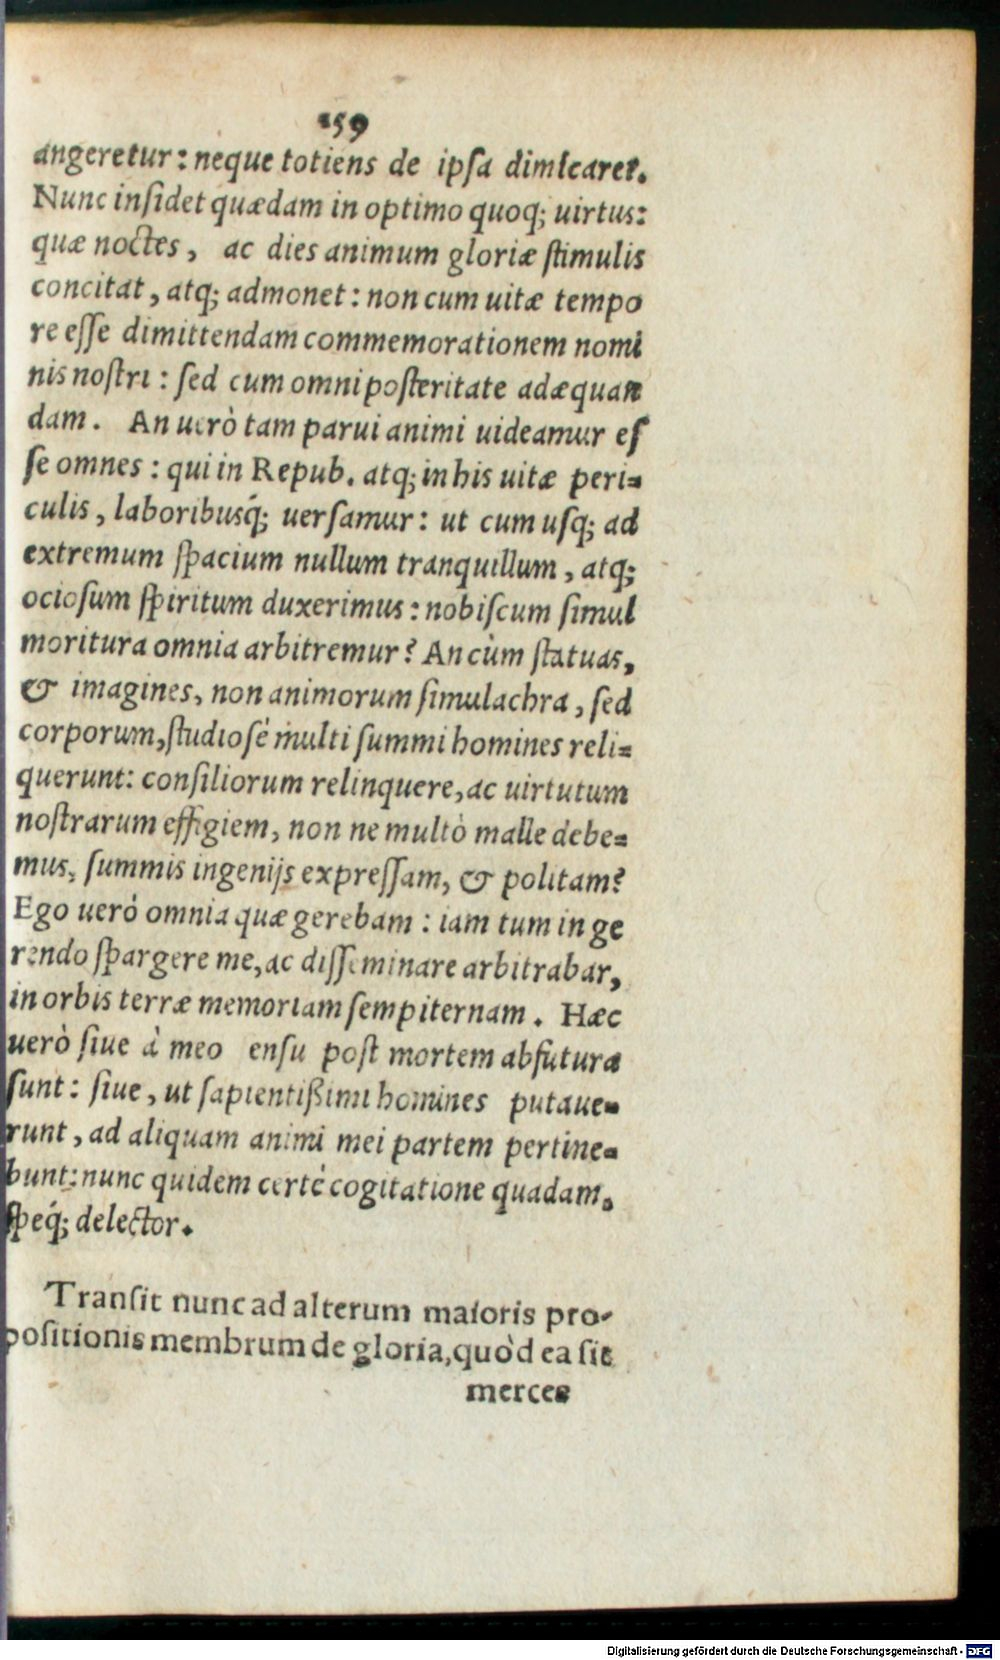 159
angeretur: neque totiens de ipſa dimicaret.
Nunc inſidet quædam in optimo quoq; uirtus:
quæ noctes, ac dies animum gloriæ ſtimulis
concitat, atq; admonet: non cum uitæ tempo
re eſſe dimittendam commemorationem nomi
nis noſtri: ſed cum omni poſteritate adæquan
dam. An uerò tam parui animi uideamur eſ
ſe omnes: qui in Repub. atq; in his uitæ peri=
culis, laboribusq́; uerſamur: ut cum uſq; ad
extremum ſpacium nullum tranquillum, atq;
ocioſum ſpiritum duxerimus: nobiſcum ſimul
moritura omnia arbitremur? An cùm ſtatuas,
& imagines, non animorum ſimulachra, ſed
corporum, ſtudioſè multi ſummi homines reli=
querunt: conſiliorum relinquere, ac uirtutum
noſtrarum effigiem, non ne multò malle debe=
mus, ſummis ingenijs expreſſam, & politam?
Ego uerò omnia quæ gerebam: iam tum in ge
rendo ſpargere me, ac diſſeminare arbitrabar,
in orbis terræ memoriam ſempiternam. Hæc
uerò ſiue à meo enſu poſt mortem abfutura
ſunt: ſiue, ut ſapientißimi homines putaue=
runt, ad aliquam animi mei partem pertine=
bunt: nunc quidem certè cogitatione quadam,
ſpeq́; delector.
Tranſit nunc ad alterum maioris pro-
poſitionis membrum de gloria, quòd ea ſit
merces
Digitalisierung gefördert durch die Deutsche Forschungsgemeinschaft - DFG